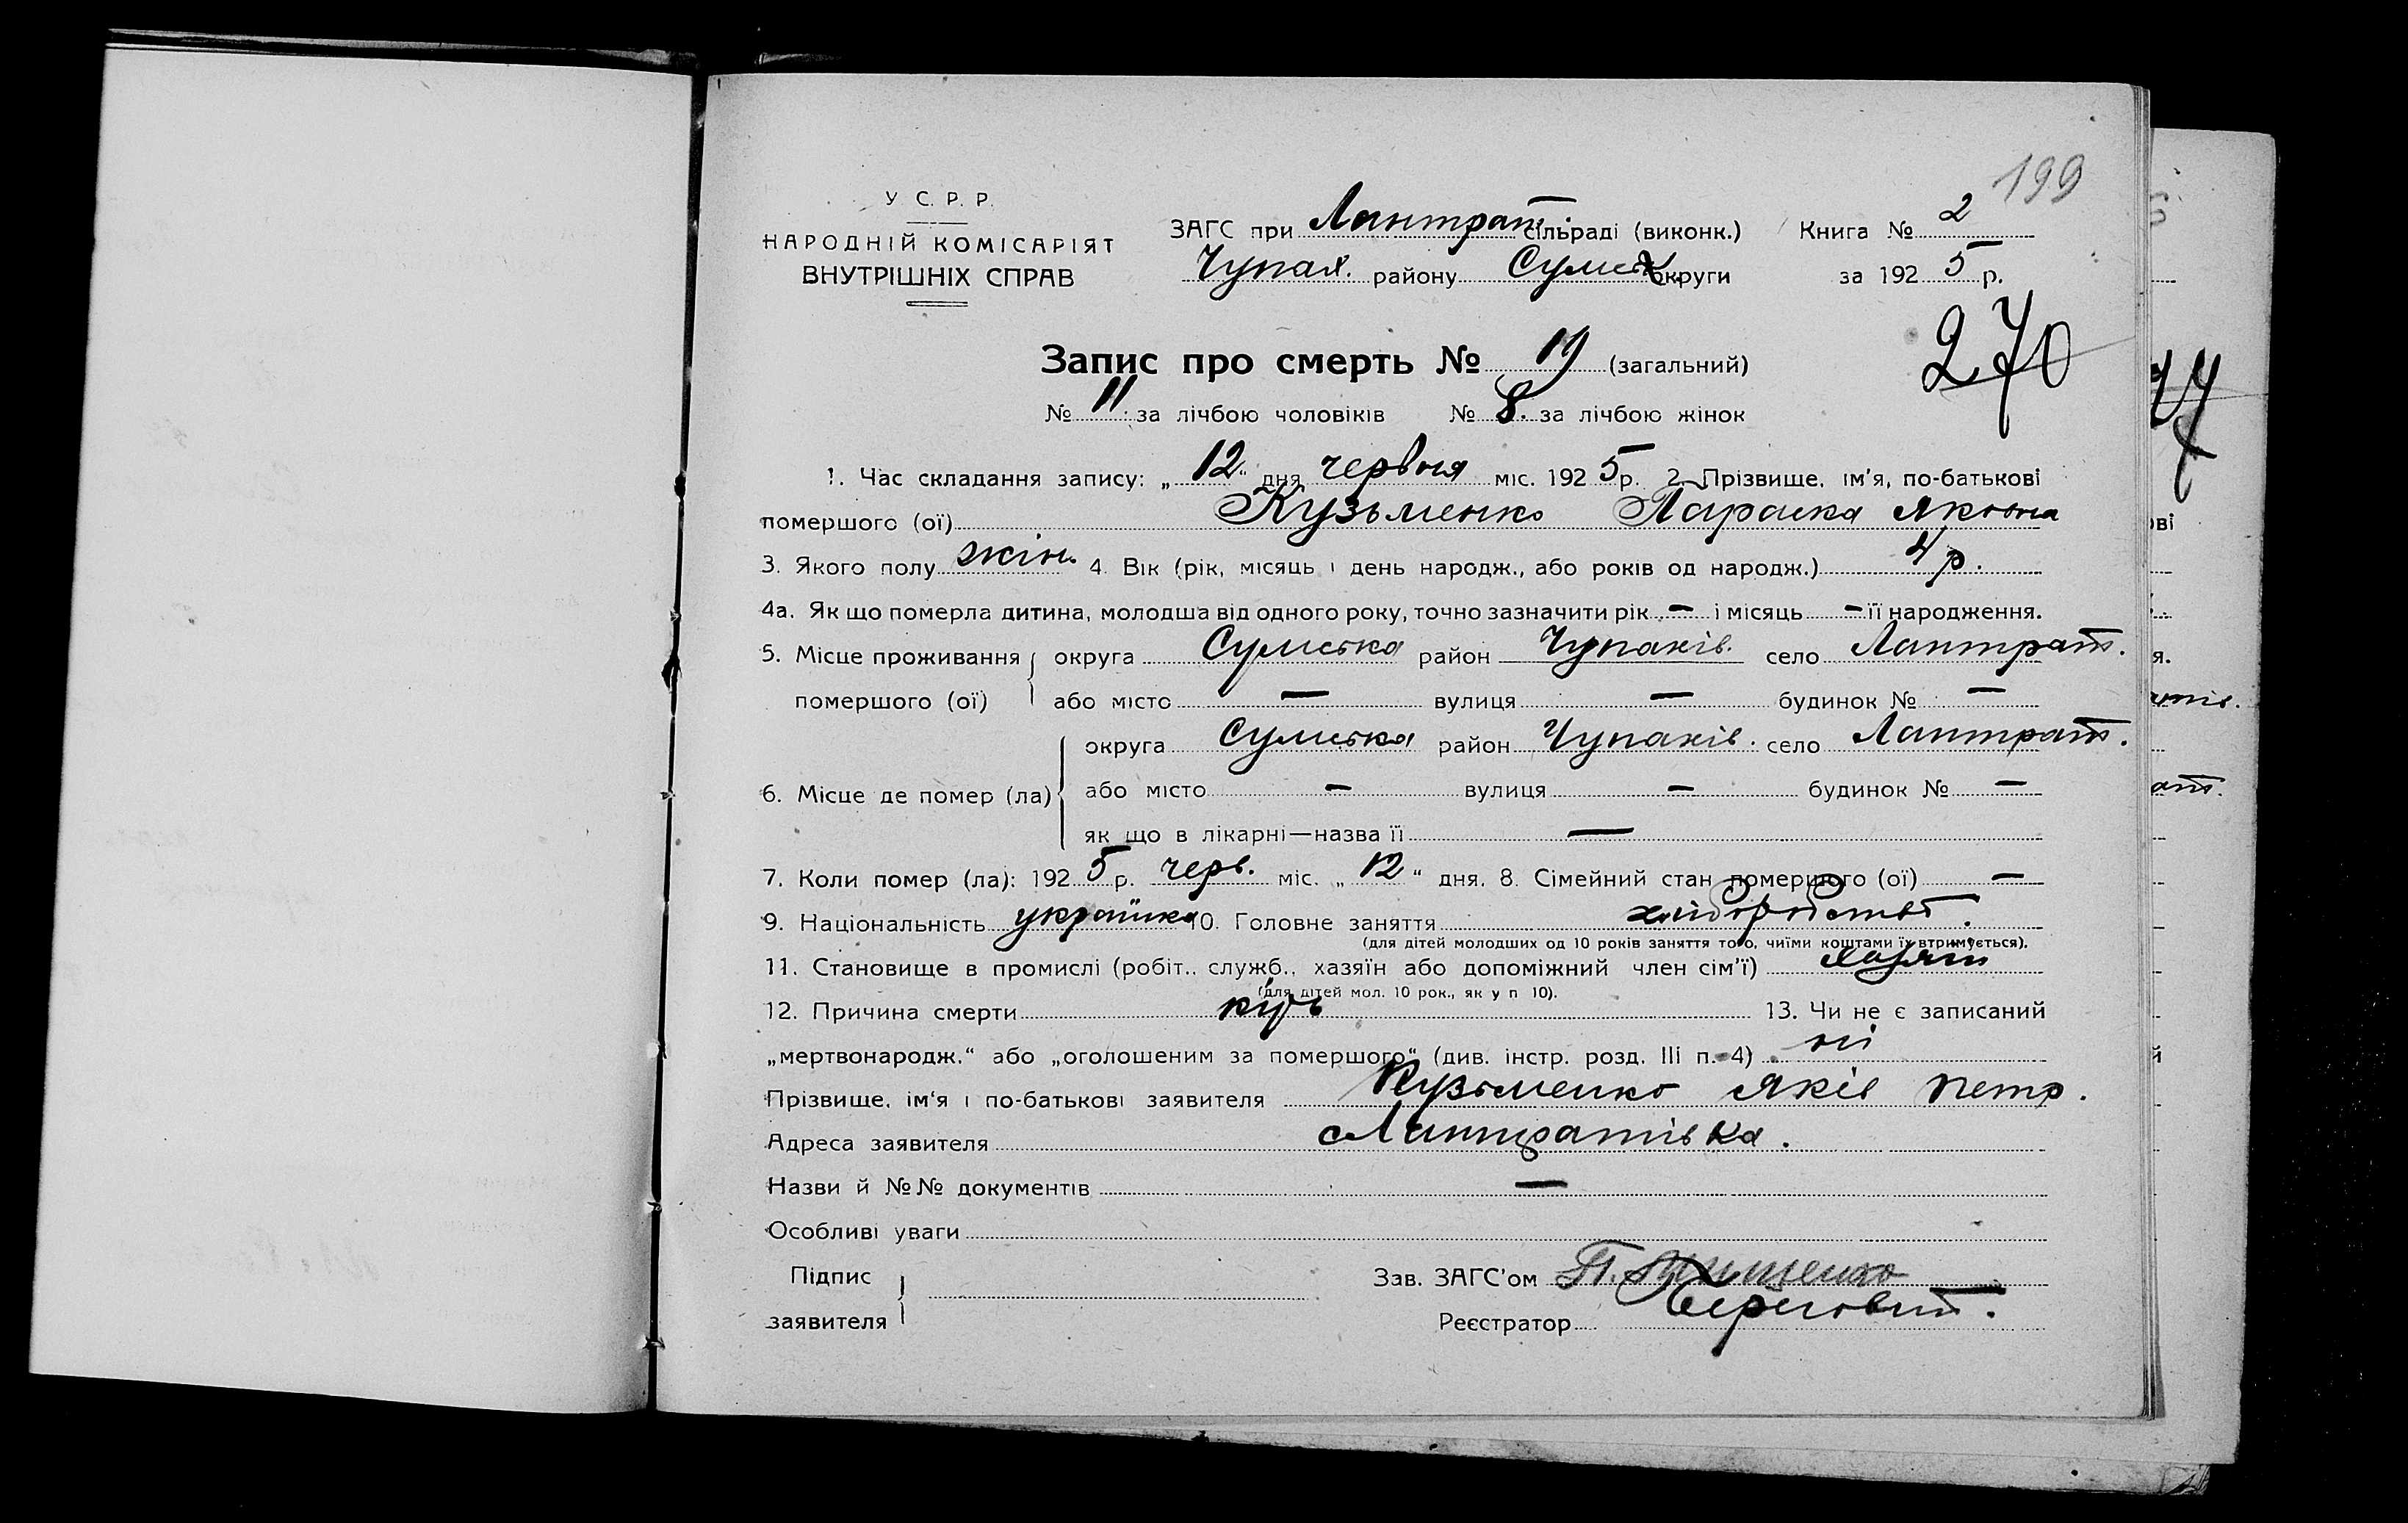 199
У С. Р. Р.
НАРОДНІЙ КОМІСАРІЯТ
ВНУТРІШНІХ СПРАВ
ЗАГС при Лантрат. сільраді (виконк.) Книга № 2
Чупах. району Сумськ. округи за 1925 р.
270
Запис про смерть № 19 (загальний)
№ 11 за лічбою чоловіків № 8. за лічбою жінок
1. Час складання запису: „12“ дня червня міс. 1925 р. 2. Прізвище, ім'я, по-батькові
помершого (ої) Кузьменко Параска Яковна
3. Якого полу жін. 4. Вік (рік, місяць і день народж., або років од народж.) 4 р.
4а. Як що померла дитина, молодша від одного року, точно зазначити рік — і місяць — її народження.
5. Місце проживання округа Сумська район Чупахів. село Лантрат.
помершого (ої) або місто — вулиця — будинок № —
округа Сумська район Чупахів. село Лантрат.
6. Місце де помер (ла) або місто — вулиця — будинок № —
як що в лікарні—назва її —
7. Коли помер (ла): 1925 р. черв. міс. „12“ дня. 8. Сімейний стан помершого (ої) —
9. Національність українка 10. Головне заняття хліборобство.
(для дітей молодших од 10 років заняття того, чиїми коштами їх втримується).
11. Становище в промислі (робіт., служб., хазяїн або допоміжний член сім'ї) хазяїн
(для дітей мол. 10 рок., як у п 10).
12. Причина смерти кір 13. Чи не є записаний
„мертвонародж.“ або „оголошеним за помершого“ (див. інстр. розд. III п. 4) ні
Прізвище, ім'я і по-батькові заявителя Кузьменко Яків Петр.
Адреса заявителя Лантратівка.
Назви й №№ документів —
Особливі уваги
Підпис
заявителя
Зав. ЗАГС'ом
Реєстратор